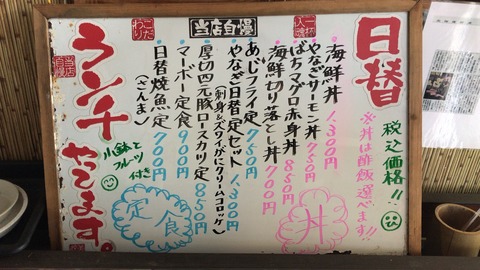 日替
税込価格!!
※丼は酢飯選べます!!
一杯入魂
海鮮丼 1,300円
やなぎサーモン丼 750円
ばちマグロ赤身丼 850円
海鮮切り落とし丼 700円
丼
当店自慢
あじフライ定 750円
やなぎ日替定セット 1,300円
(刺身&ズワイがにクリームコロッケ)
厚切四元豚ロースカツ定 850円
マーボー定食 900円
日替焼魚定 700円
(さんま)
定食
こだわり
当店自慢
ランチやってます。
小鉢とフルーツ付き